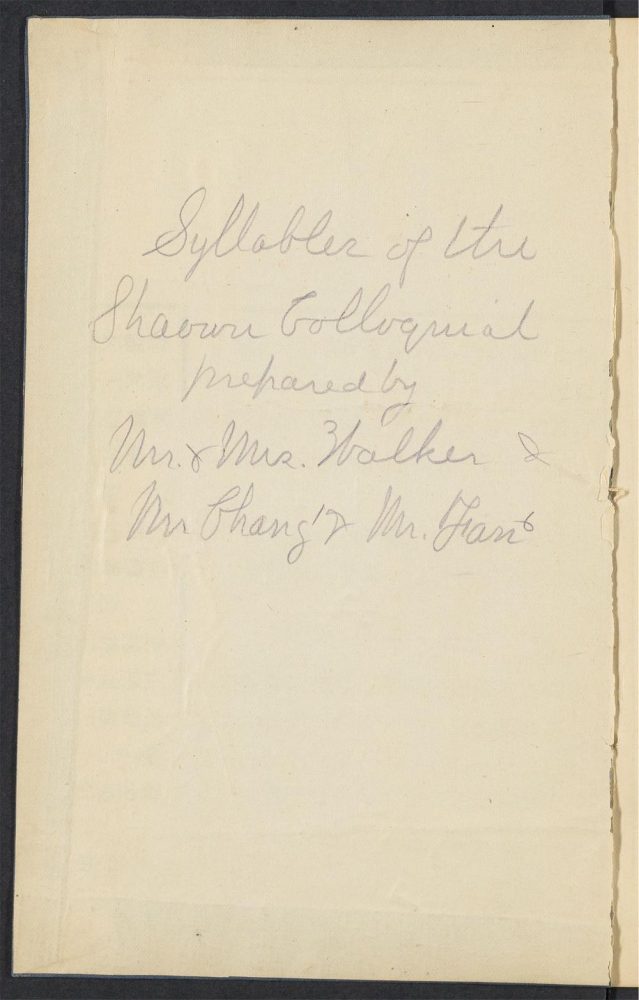 Syllables of the
Shaowu Colloquial
prepared by
Mr. & Mrs. Walker &
Mr Chang & Mr.